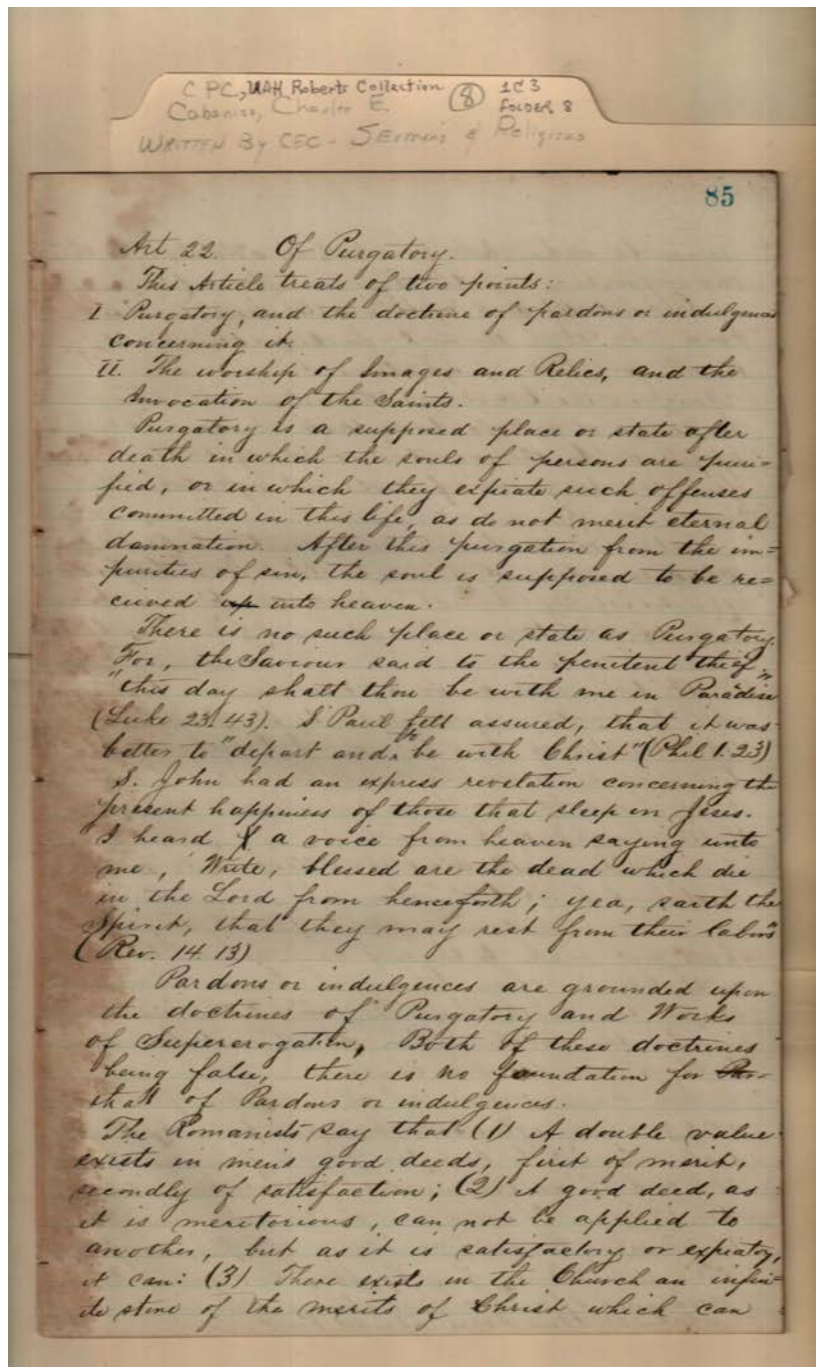 CPC, UAH Roberts Collection (8) 1C3
Cabaniss, Charles E. FOLDER 8
WRITTEN By CEC - SERMONS & Religious
85
Art 22. Of Purgatory.
This Article treats of two points:
I Purgatory, and the doctrine of pardons or indulgences
concerning it.
II. The worship of Images and Relics, and the
Invocation of the Saints.
Purgatory is a supposed place or state after
death in which the souls of persons are puri=
fied, or in which they expiate such offenses
committed in this life, as do not merit eternal
damnation. After this purgation from the im=
purities of sin, the soul is supposed to be re=
cieved up into heaven.
There is no such place or state as Purgatory.
For, the Saviour said to the penitent thief,
"this day shalt thou be with me in Paradise"
(Luke 23.43). S Paul felt assured, that it was
better to "depart and to be with Christ" (Phil 1.23)
S. John had an express revelation concerning the
present happiness of those that sleep in Jesus.
I heard a voice from heaven saying unto
me, Write, blessed are the dead which die
in the Lord from henceforth; yea, saith the
Spirit, that they may rest from their labors"
(Rev. 14.13)
Pardons or indulgences are grounded upon
the doctrines of Purgatory and Works
of Supererogation, Both of these doctrines
being false, there is no foundation for
that of Pardons or indulgences.
The Romanists say that (1) A double value
exists in men's good deeds, first of merit,
secondly of satisfaction; (2) A good deed, as
it is meritorious, can not be applied to
another, but as it is satisfactory or expiatory,
it can: (3) There exists in the Church an infin-
ite store of the merits of Christ which can